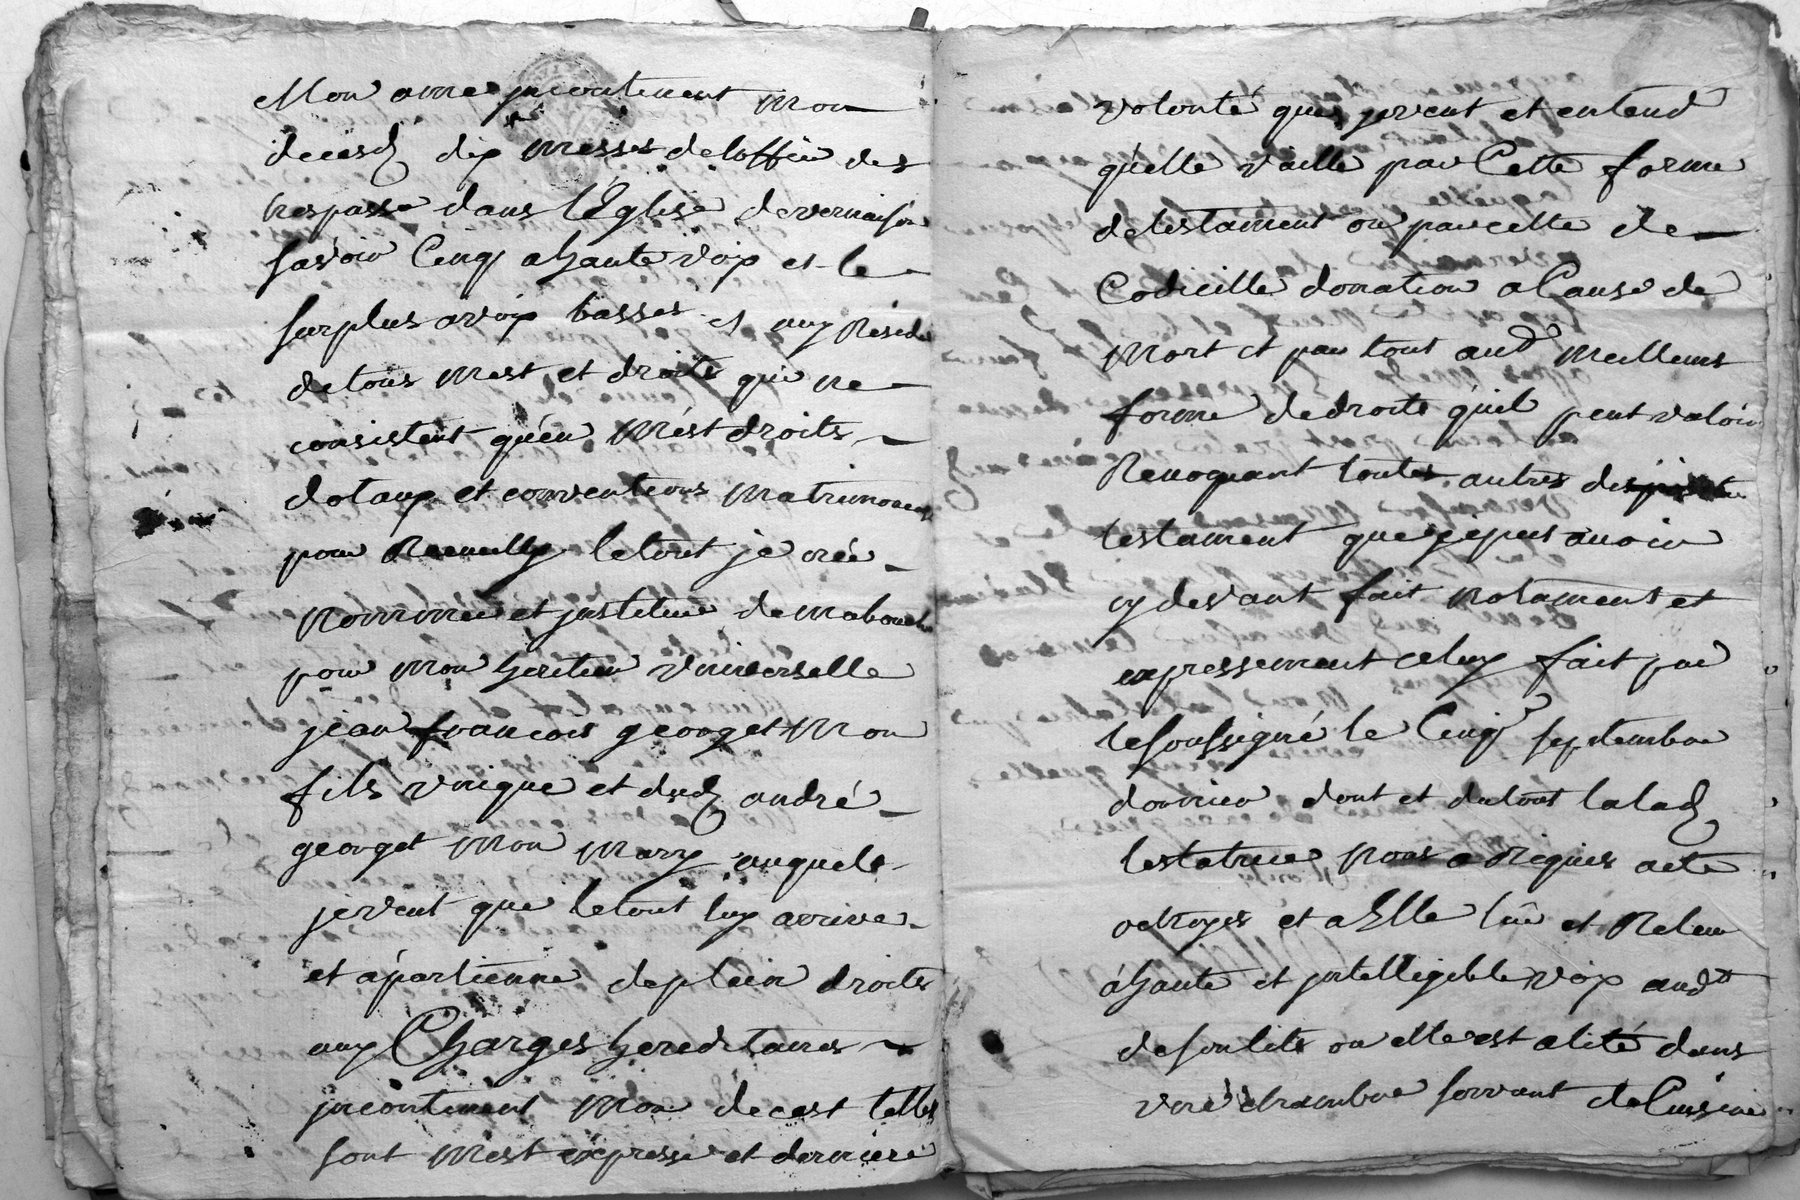 Mon ame jncontinent mon
deces dix messes de loffice des
trespasse dans lEglise de vernaison
savoir Cinq a haute voix et le
surplus a voix basses et aux Residu
de tous mest et droits qui ne
consistent qu'en mést droits
dotaux et conventions matrimoniaux
pour Recueilly le tout je crée
nommée et jnstitue de ma bouche
pour mon heritier vniverselle
jean françois georget mon
fils vnique et dud andré
georget mon mary auquels
je veut que le tout luy arrive
et apartienne de plein droits
aux Charges hereditaires
jncontinent mon decest telles
sont mest expresse et derniere
volonté que je veut et entend
qu'elle vaille par Cette forme
de testament ou par cette de
Codicille donation a Cause de
Mort et par tout aud meilleurs
forme de droits qu'il peut valoir
Revoquant toutes autres
testament que je peut avoir
cy devant fait notament et
expressement celuy fait par
le soussigné le Cinq septembre
dernier dont et du tout lalad
testatrice nous a Requis acte
octroyes et a Elle lüe et Releu
á haute et jntelligible voix aud
de son lits ou elle est alité dans
vne chambre servant de Cuisine